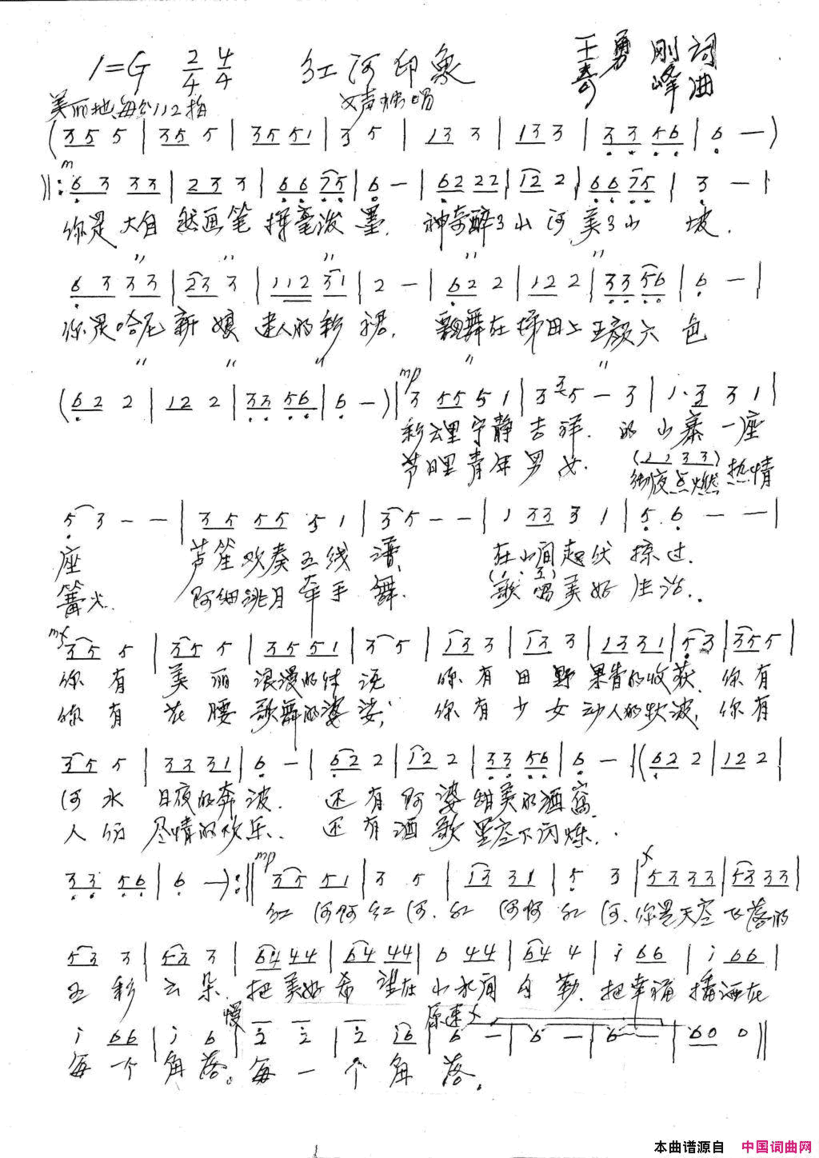 1=G 2/4 4/4 红河印象 王勇刚词
美丽地 每分112拍 女声独唱 寿峰曲
(3 5 5 | 3 5 5 | 3 5 5 1 | 3 5 | 1 3 3 | 1 3 3 | 3 3 5 6 | 6 — )
m
‖: 6 3 3 3 | 2 3 3 | 6 6 7 5 | 6 — | 6 2 2 2 | 1 2 2 | 6 6 7 5 | 3 — |
你是大自然画笔挥毫泼墨. 神奇醉了山河美了山坡.
6 3 3 3 | 2 3 3 | 1 1 2 3 1 | 2 — | 6 2 2 | 1 2 2 | 3 3 5 6 | 6 — |
你是哈尼新娘迷人的彩裙, 飘舞在梯田上五颜六色
(6 2 2 | 1 2 2 | 3 3 5 6 | 6 — ) | mp 3 5 5 5 1 | 3 3 5 — 3 | 1· 3 3 1 |
彩云里宁静吉祥. 的山寨一座
节日里青年男女. (1 1 3 3) 彻夜点燃热情
5 3 — — | 3 5 5 5 5 1 | 3 5 — — | 1 3 3 3 1 | 5 6 — — |
座 芦笙吹奏五线谱, 在山间起伏掠过.
篝火. 阿细跳月牵手舞. 歌唱美好生活..
mf
3 5 5 | 3 5 5 | 3 5 5 1 | 3 5 | 1 3 3 | 1 3 3 | 1 3 3 1 | 5 3 | 3 5 5 |
你有美丽浪漫的传说 你有田野果香的收获. 你有
你有花腰歌舞的婆娑; 你有少女动人的秋波, 你有
3 5 5 | 3 3 3 1 | 6 — | 6 2 2 | 1 2 2 | 3 3 5 6 | 6 — | (6 2 2 | 1 2 2 |
河水日夜的奔波. 还有阿婆甜美的酒窝
人们尽情的欢乐.. 还有酒歌星空下闪烁..
3 3 5 6 | 6 — ) :‖ mp 3 5 5 1 | 3 5 | 1 3 3 1 | 5 3 | f 5 3 3 3 | 5 3 3 3 |
红河啊红河. 红河啊红河. 你是天空飞落的
5 3 3 | 5 3 3 | 6 4 4 4 | 6 4 4 4 | 6 4 4 | 6 4 4 | i 6 6 | i 6 6 |
五彩云朵. 把美好希望在山水间勾勒. 把幸福播洒在
慢 原速 f
i 6 6 | i 6 | 2 2 | 2 i 6 | 6 — | 6 — | 6 — | 6 0 0 ‖
每一个角落。每一个角落.
1
本曲谱源自 中国词曲网